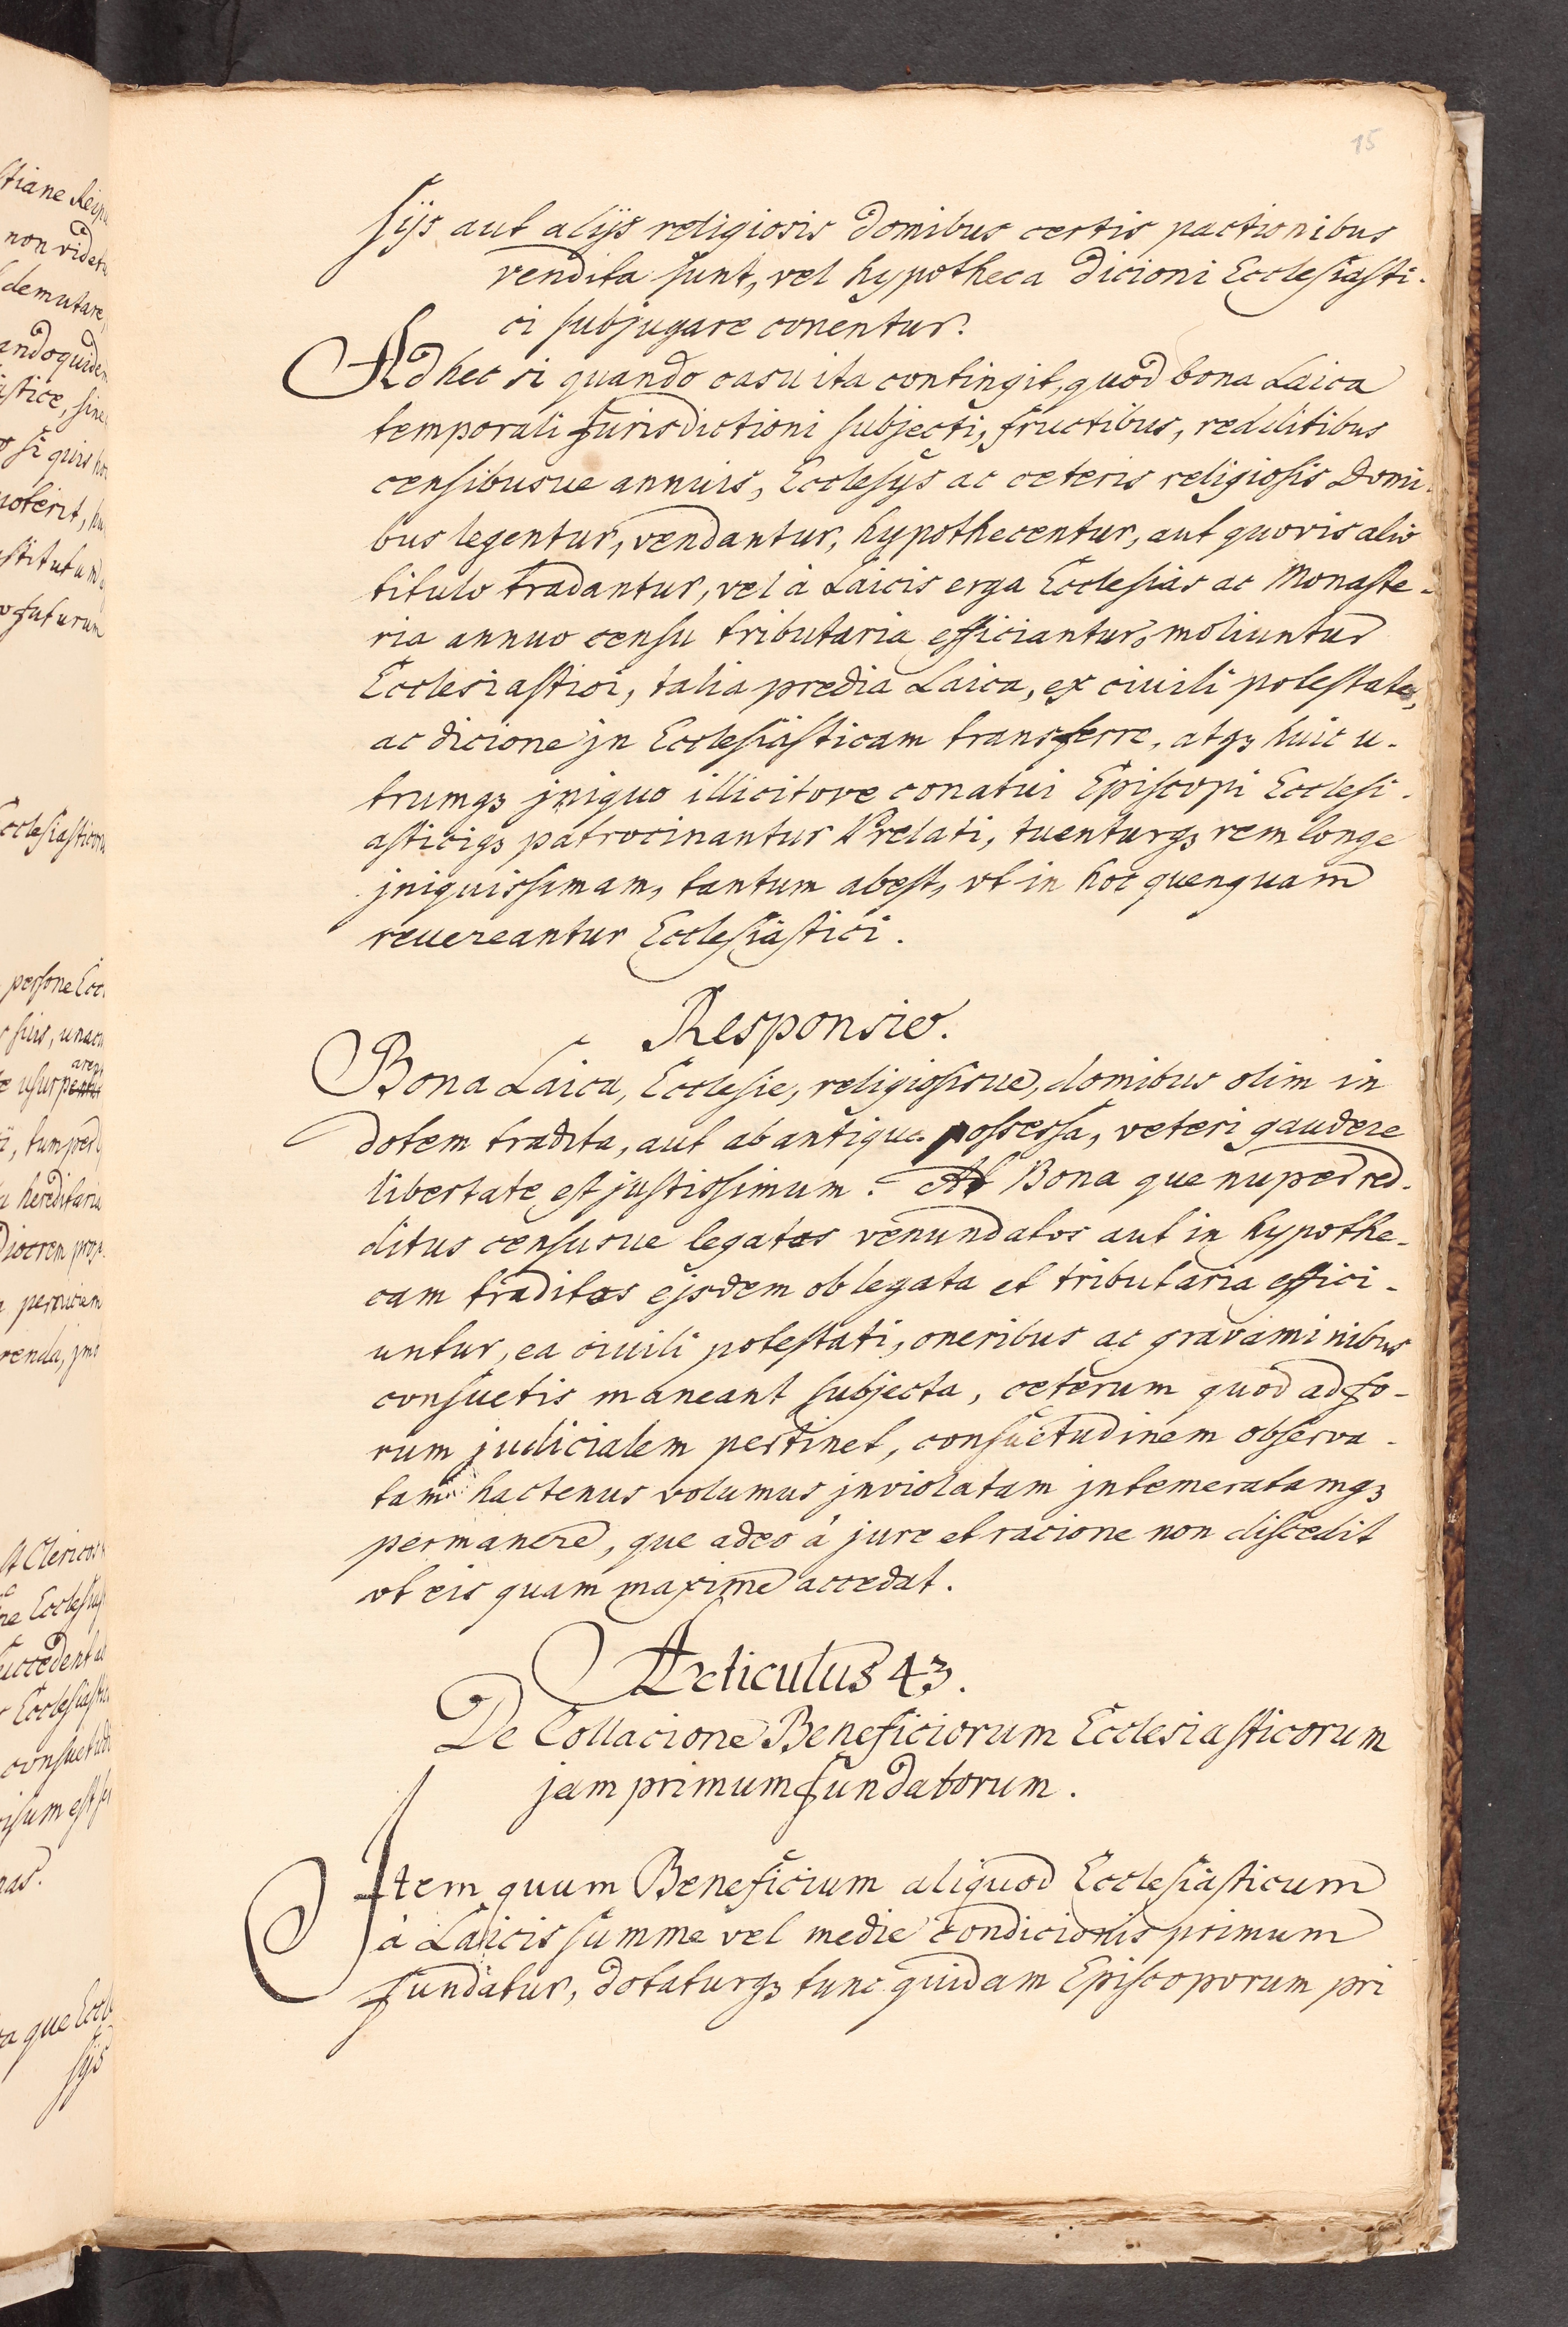 15
sijs aut alijs religiosis domibus certis pactionibus
vendita sunt, vel hypotheca dicioni Ecclesiasti-
ci subjugare conentur.
Ad hec si quando casu ita contingit, quod bona Laica
temporali Jurisdictioni subjecti, fructibus, redditibus
censibusue annuis, Ecclesijs ac ceteris religiosis Domi-
bus legentur, vendantur, hypothecentur, aut quovis alio
titulo tradantur, vel à Laicis erga Ecclesias ac Monaste-
ria annuo censu tributaria efficiantur, moliuntur
Ecclesiastici, talia predia Laica, ex civili potestate,
ac dicione jn Ecclesiasticam transferre, atqȝ huic u-
trumqȝ jniquo illicitove conatui Episcopi Ecclesi-
asticiqȝ patrocinantur Prelati, tuenturqȝ rem longe
jniquissimam, tantum abest, vt in hoc quenquam
reuereantur Ecclesiastici.
Responsio.
Bona Laica, Ecclesie, religiosisue, domibus olim in
dotem tradita, aut ab antiquo possessa, veteri gaudere
libertate est justissimum. At Bona que nuper red-
ditus censusue legatos venundatos aut in hypothe-
cam traditos ejsdem oblegata et tributaria effici-
untur, ea ciuili potestati, oneribus ac gravaminibus
consuetis maneant subjecta, ceterum quod ad fo-
rum judicialem pertinet, consuetudinem observa-
tam hactenus volumus jnviolatam jntemeratamqȝ
permanere, que adeo à jure et racione non discedit
vt eis quam maxime accedat.
Articulus 43.
De Collacione Beneficiorum Ecclesiasticorum
jam primum fundatorum.
Item quum Beneficium aliquod Ecclesiasticum
à Laicis summe vel medie condicionis primum
fundatur, dotaturqȝ tunc quidam Episcoporum pri